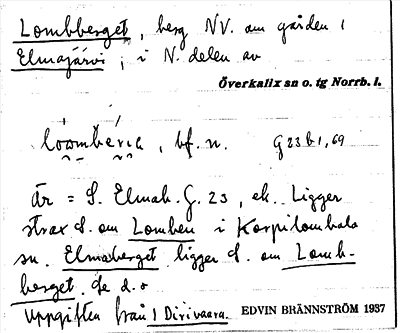 Lombberget, berg NV. om gården 1
Elmajärvi; i N. delen av
Överkalix sn o. tg Norrb. l.
bf. n. G 23 b 1, 69
är = S. Elmab. G. 23, ek. Ligger
strax d. om Lomben i Korpilombolo
sn. Elmaberget ligger d. om Lomb-
berget. Se d. o
Uppgiften från 1 Dirivaara. EDVIN BRÄNNSTRÖM 1937